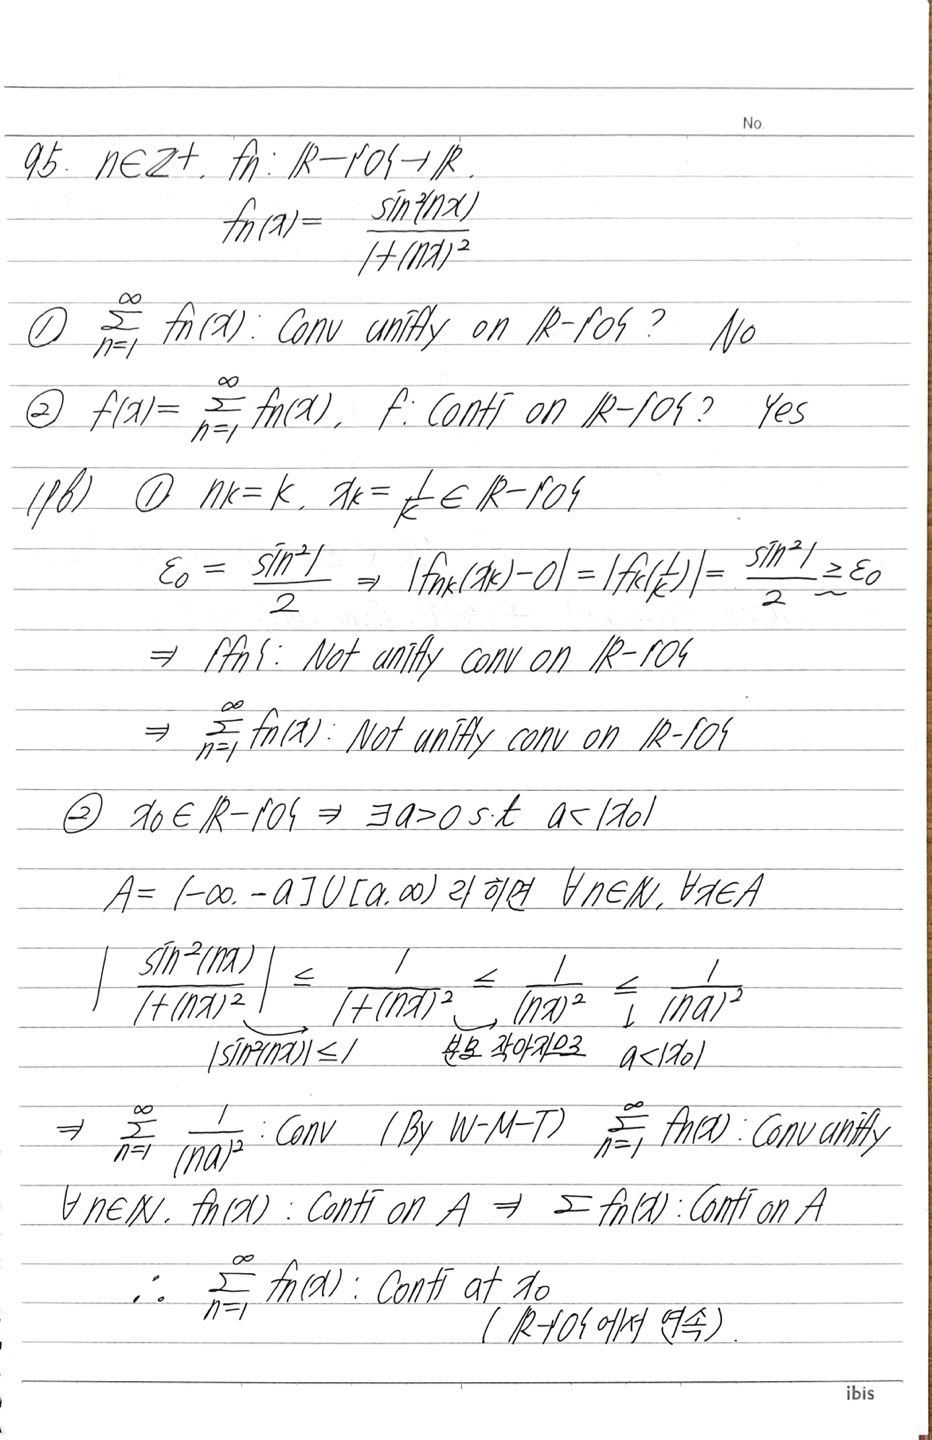 No.
95. n∈Z+. fn: ℝ-{0}→ℝ.
fn(x)= sin²(nx) / 1+(nx)²
① ∞Σn=1 fn(x): Conv unifly on ℝ-{0}? No
② f(x)= ∞Σn=1 fn(x). f: Conti on ℝ-{0}? Yes
(pf) ① nk=k. xk=1/k ∈ ℝ-{0}
ε0 = sin²1/2 ⇒ |fnk(xk)-0|=|fk(1/k)|= sin²1/2 ≥ ε0
⇒ {fn}: Not unifly conv on ℝ-{0}
⇒ ∞Σn=1 fn(x): Not unifly conv on ℝ-{0}
② x0∈ℝ-{0} ⇒ ∃a>0 s.t a<|x0|
A= (-∞. -a]∪[a.∞) 라 하면 ∀n∈ℕ, ∀x∈A
| sin²(nx) / 1+(nx)² | ≤ 1 / 1+(nx)² ≤ 1 / (nx)² ≤ 1 / (na)²
|sin²(nx)|≤1 분모 작아지므로 a<|x0|
⇒ ∞Σn=1 1/(na)² : Conv (By W-M-T) ∞Σn=1 fn(x): Conv unifly
∀n∈ℕ. fn(x): Conti on A ⇒ Σfn(x): Conti on A
∴ ∞Σn=1 fn(x): Conti at x0
(ℝ-{0}에서 연속).
ibis